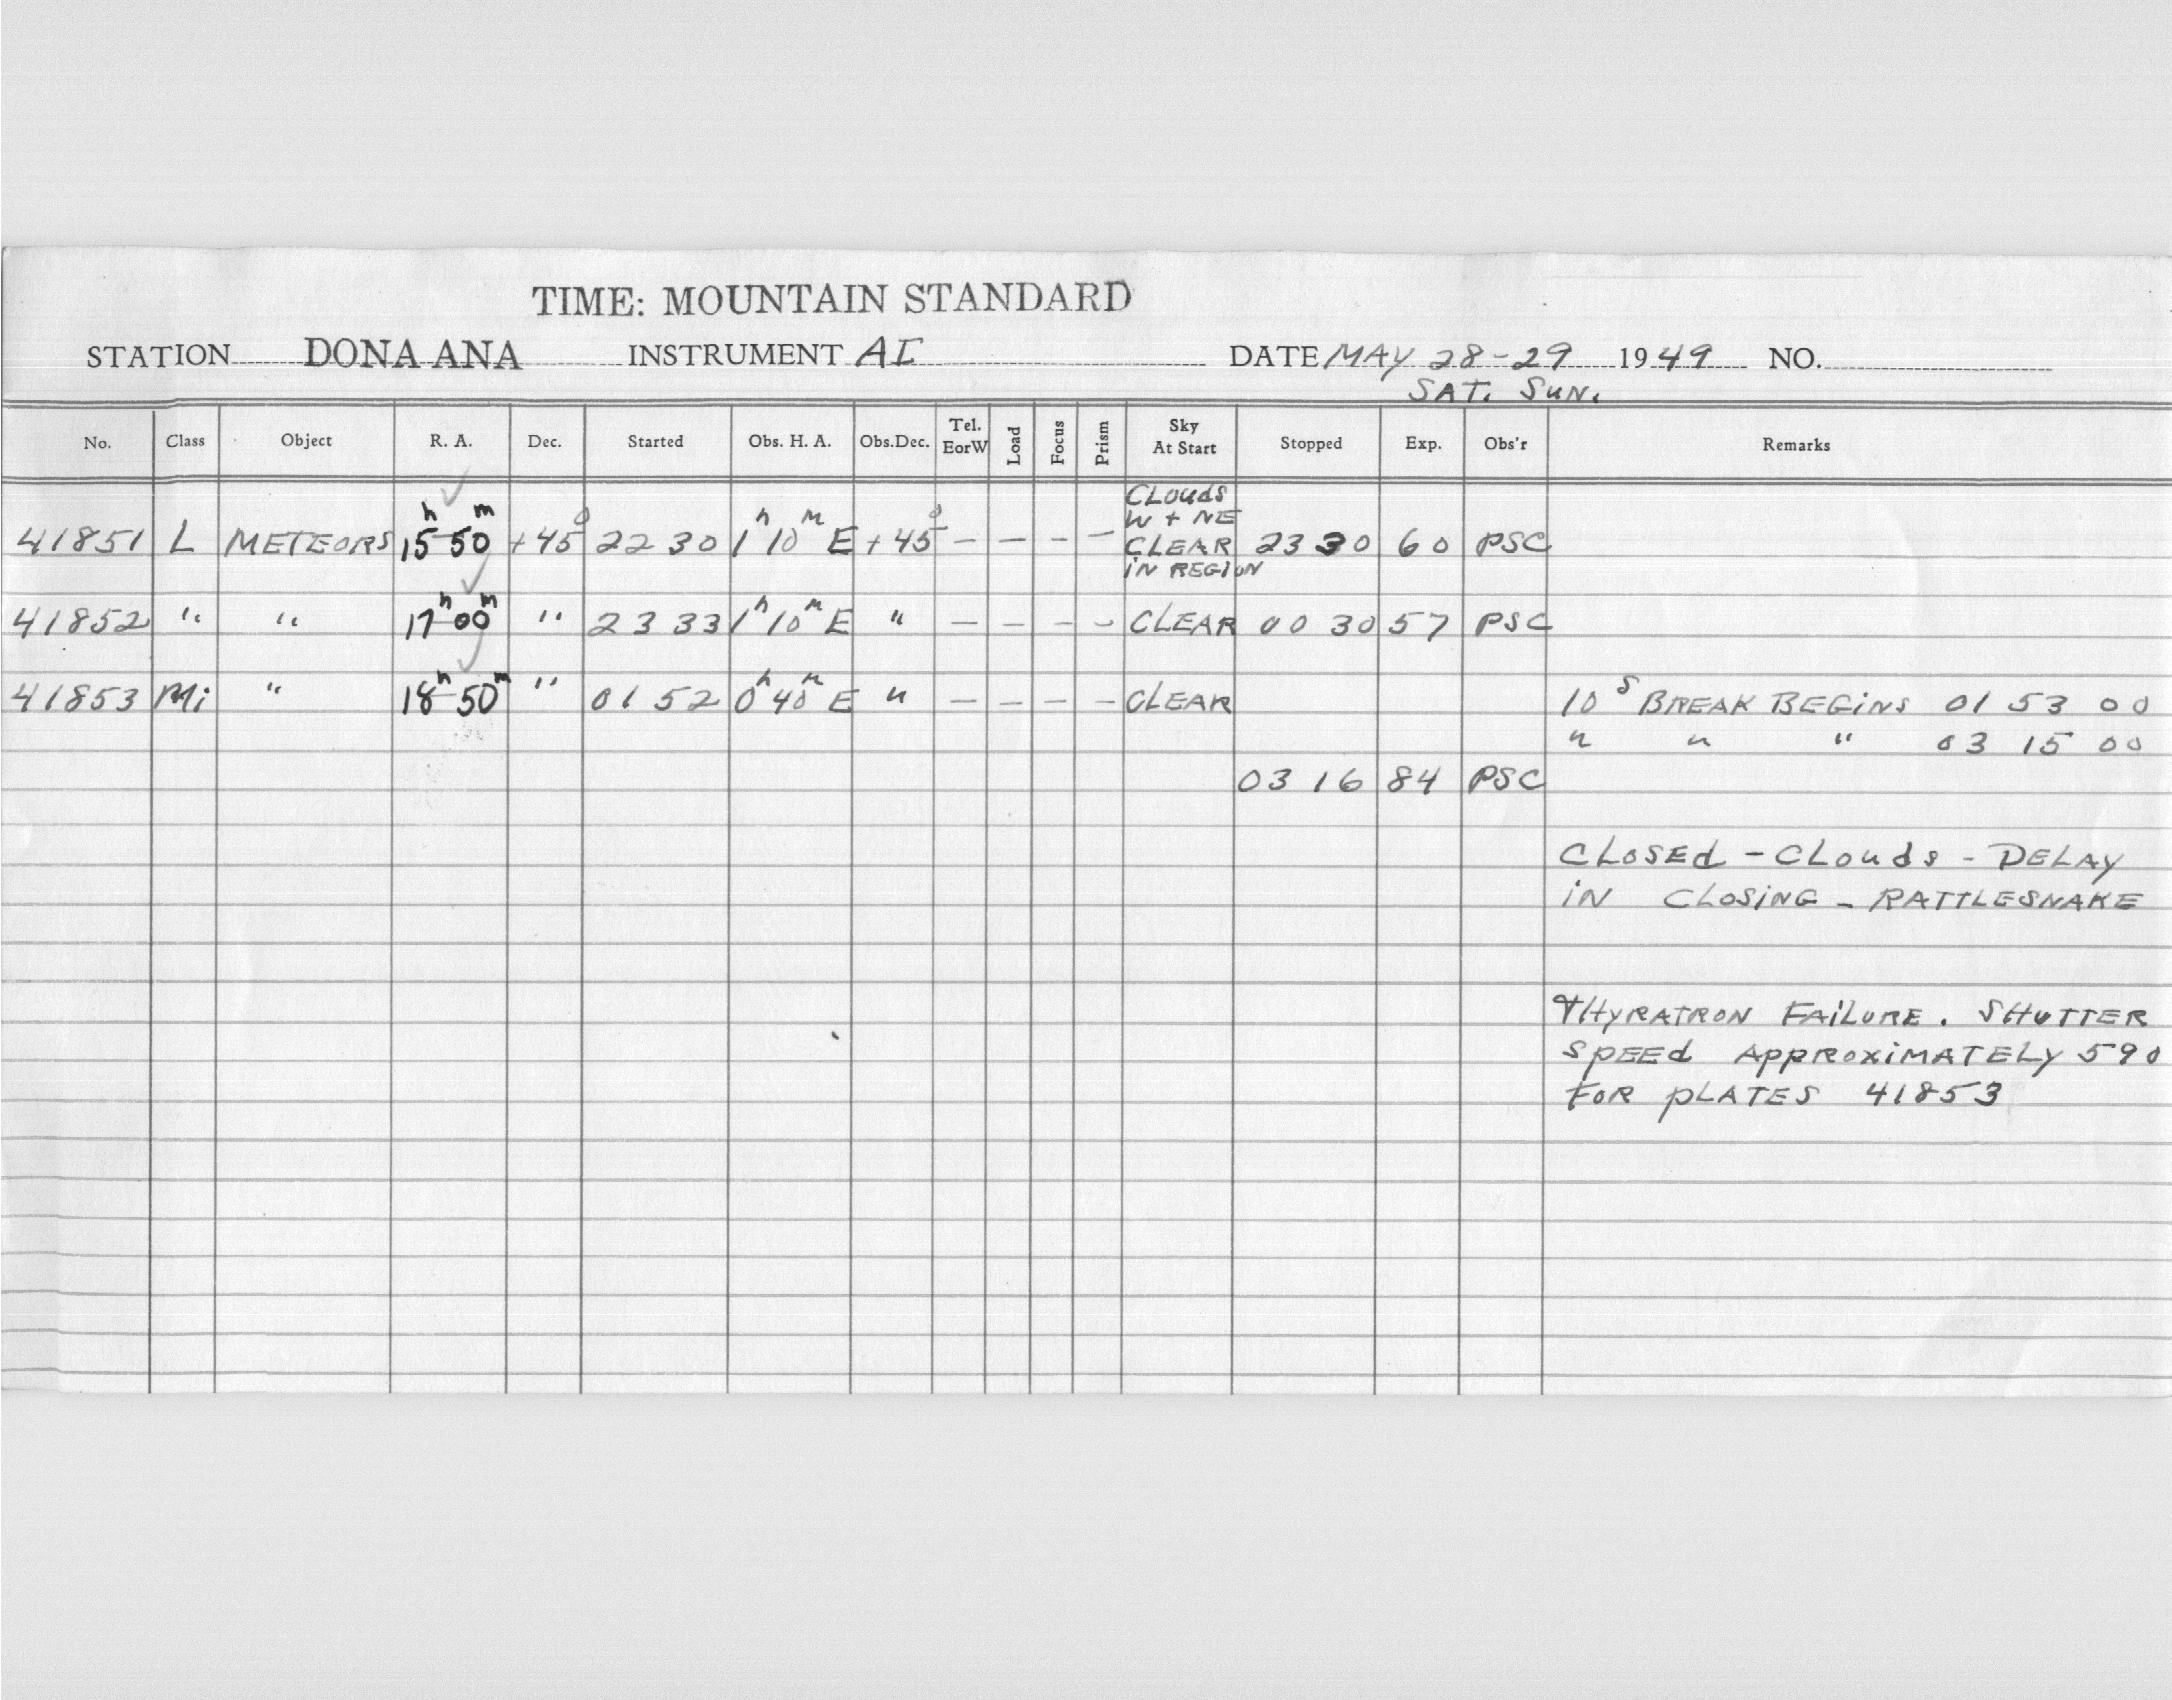 TIME: MOUNTAIN STANDARD
STATION DONA ANA INSTRUMENT AI DATE MAY 28-29 1949 NO.
SAT. SUN.
No. Class Object R. A. Dec. Started Obs. H. A. Obs.Dec. Tel. EorW Load Focus Prism Sky At Start Stopped Exp. Obs'r Remarks
41851 L METEORS 15h 50m +45° 22 30 1h 10m E +45° — — — — CLOUDS W + NE CLEAR IN REGION 23 30 60 PSC
41852 " " 17h 00m " 23 33 1h 10m E " — — — — CLEAR 00 30 57 PSC
41853 Mi " 18h 50m " 01 52 0h 40m E " — — — — CLEAR 10s BREAK BEGINS 01 53 00
" " " 03 15 00
03 16 84 PSC
CLOSED - CLOUDS - DELAY
IN CLOSING - RATTLESNAKE
THYRATRON FAILURE. SHUTTER
SPEED APPROXIMATELY 590
FOR PLATES 41853